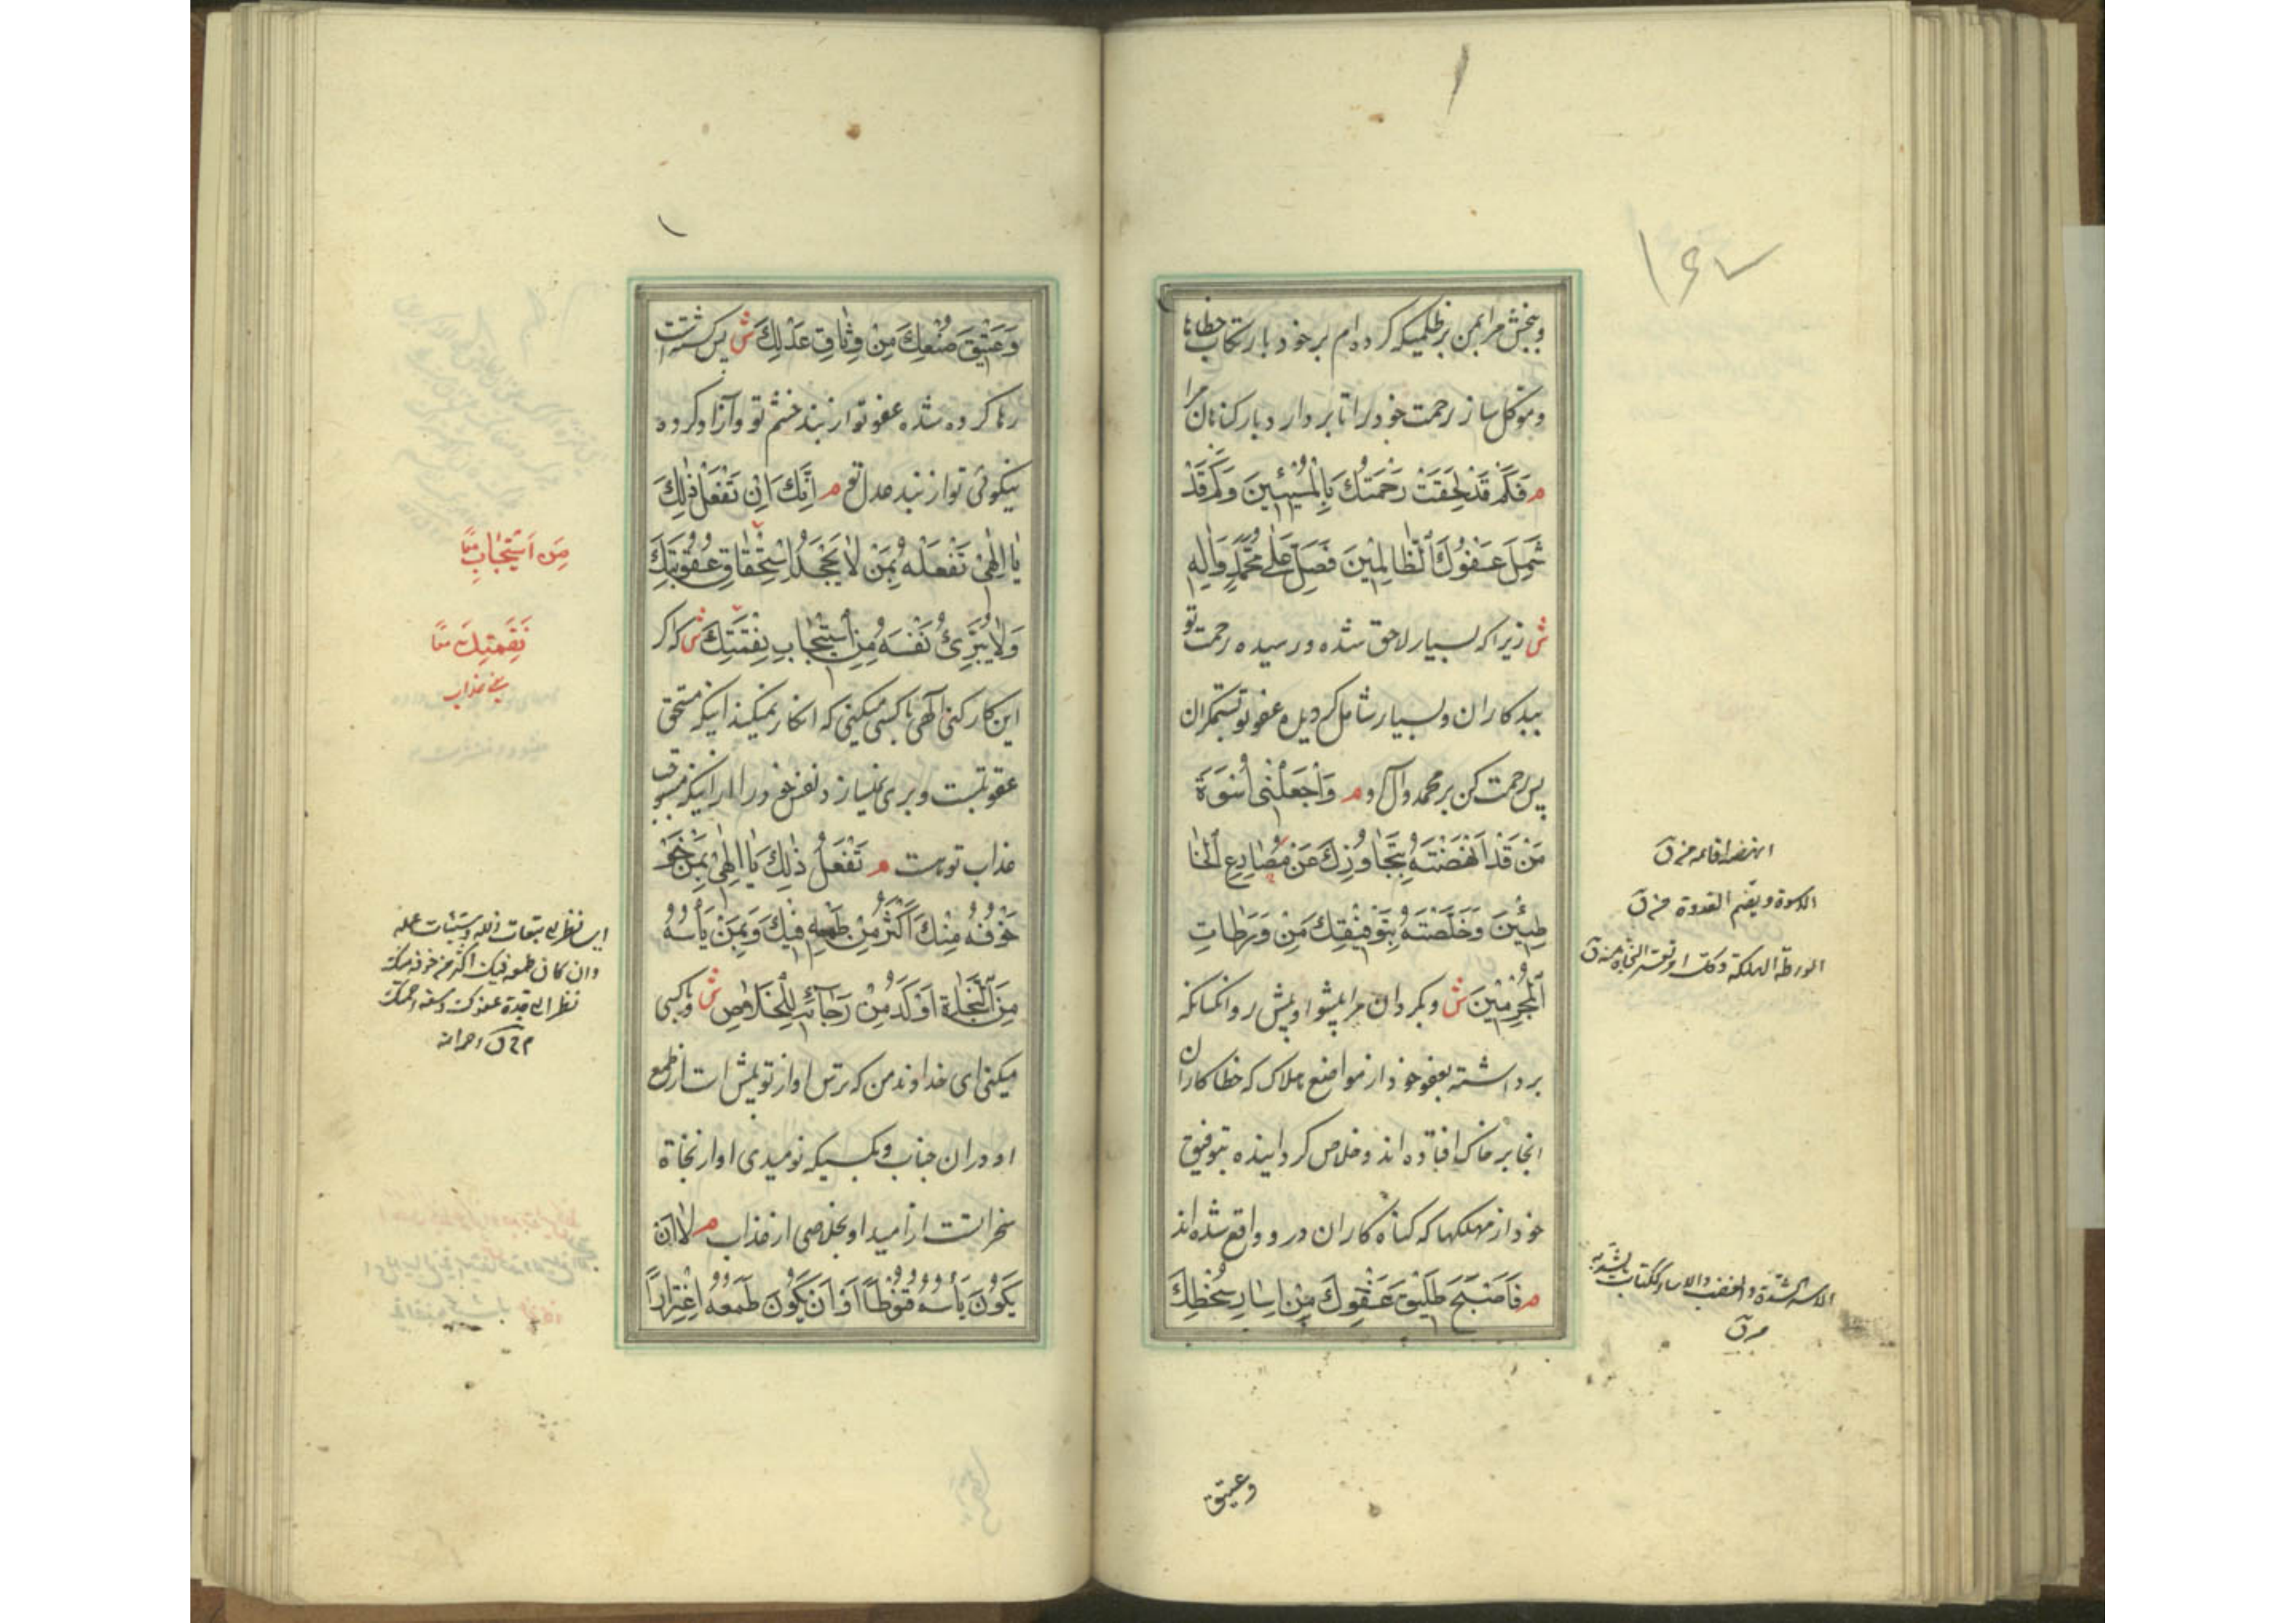 ۱۶۷
وببخش مرا بمن بر ظلمیکه کرده‌ام بر خود بارتکاب خطاها
وموکل ساز رحمت خود را تا بردارد بار کناهان مرا
م فَكَمْ قَدْ لَحِقَتْ رَحْمَتُكَ بِالْمُسِيئِينَ وَكَمْ قَدْ
شَمِلَ عَفْوُكَ الظَّالِمِينَ فَصَلِّ عَلَى مُحَمَّدٍ وَآلِهِ
ش زیرا که بسیار لاحق شده ورسیده رحمت تو
ببدکاران وبسیار شامل کردیده عفو تو ستمکران
پس رحمت کن بر محمد وآل او م وَاجْعَلْنِي أُسْوَةَ
مَنْ قَدْ أَنْهَضْتَهُ بِتَجَاوُزِكَ عَنْ مَصَارِعِ الْخَا
طِئِينَ وَخَلَّصْتَهُ بِتَوْفِيقِكَ مِنْ وَرَطَاتِ
الْمُجْرِمِينَ ش وبکردان مرا پیشوا وپیش رو انکسانکه
برداشته بعفو خود از مواضع هلاک که خطا کاران
انجا بر خاک افتاده اند وخلاص کردانیده بتوفیق
خود از مهلکها که کناه کاران در و واقع شده اند
م فَأَصْبَحَ طَلِيقَ عَفْوِكَ مِنْ إِسَارِ سُخْطِكَ
انهضه اقامه من ق
الاسوة ویضم القدوة من ق
الورطة الهلکة وکل امر تعسر النجاة منه ق
من ق
وعتیق
وَعَتِيقَ صُنْعِكَ مِنْ وِثَاقِ عَدْلِكَ ش پس کشته است
رها کرده شده عفو تو از بند خشم تو وآزاد کرده
نیکوئی تو از بند عدل تو م إِنَّكَ إِنْ تَفْعَلْ ذَلِكَ
يَا إِلَهِي تَفْعَلْهُ بِمَنْ لَا يَجْحَدُ اسْتِحْقَاقَ عُقُوبَتِكَ
وَلَا يُبَرِّئُ نَفْسَهُ مِنِ اسْتِيجَابِ نِقْمَتِكَ ش که اکر
این کار کنی الهی با کسی میکنی که انکار نمیکند اینکه مستحق
عقوبتست وبری نمیسازد نفس خود را از اینکه مستوجب
عذاب توست م تَفْعَلُ ذَلِكَ يَا إِلَهِي بِمَنْ خَوْ
خَوْفُهُ مِنْكَ أَكْثَرُ مِنْ طَمَعِهِ فِيكَ وَبِمَنْ يَأْسُهُ
مِنَ النَّجَاةِ أَوْكَدُ مِنْ رَجَائِهِ لِلْخَلَاصِ ش با کسی
میکنی ای خداوند من که ترس او از تو بیش است از طمع
او در ان جناب وبکسیکه نومیدی او از نجاة
سخرانست از امید او بخلاصی از عذاب م لَا أَنْ
يَكُونَ يَأْسُهُ قُنُوطًا أَوْ أَنْ يَكُونَ طَمَعُهُ اغْتِرَارًا
مِن اسْتِيجَابِ معًا
نَقِمَتِكَ معًا
یعنی عذاب